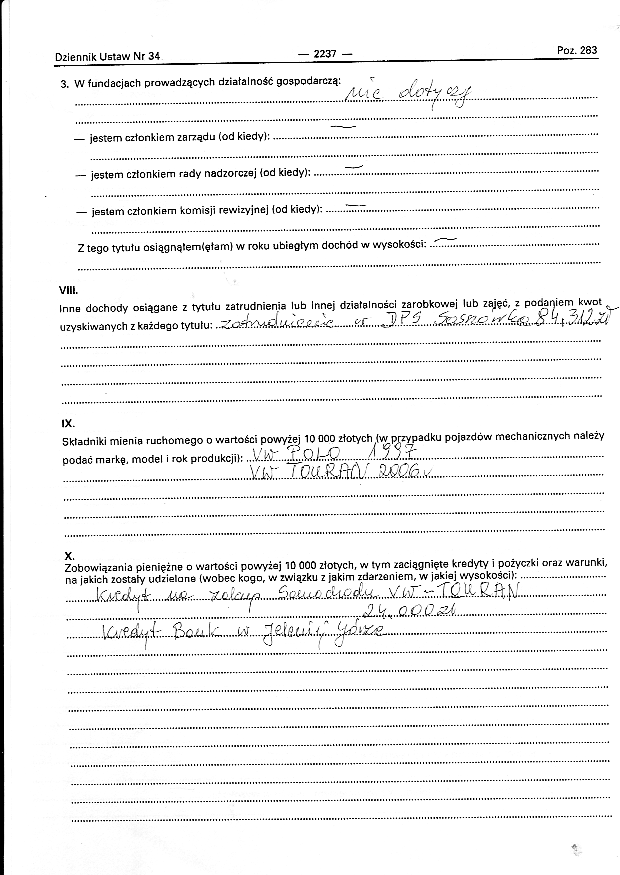 Dziennik Ustaw Nr 34 — 2237 — Poz. 283
3. W fundacjach prowadzących działalność gospodarczą: nie dotyczy
— jestem członkiem zarządu (od kiedy): —
— jestem członkiem rady nadzorczej (od kiedy): —
— jestem członkiem komisji rewizyjnej (od kiedy): —
Z tego tytułu osiągnąłem(ęłam) w roku ubiegłym dochód w wysokości: —
VIII.
Inne dochody osiągane z tytułu zatrudnienia lub innej działalności zarobkowej lub zajęć, z podaniem kwot
uzyskiwanych z każdego tytułu: zatrudnienie w DPS Sosnówka 84,312 zł
IX.
Składniki mienia ruchomego o wartości powyżej 10 000 złotych (w przypadku pojazdów mechanicznych należy
podać markę, model i rok produkcji): VW POLO 1997
VW TOURAN 2006 r
X.
Zobowiązania pieniężne o wartości powyżej 10 000 złotych, w tym zaciągnięte kredyty i pożyczki oraz warunki,
na jakich zostały udzielone (wobec kogo, w związku z jakim zdarzeniem, w jakiej wysokości):
Kredyt na zakup Samochodu VW – TOURAN
24.000 zł
Kredyt Bank w Jeleniej Górze